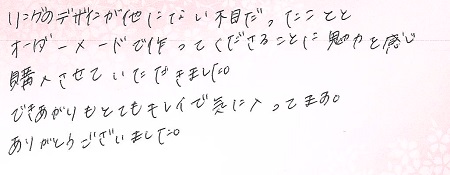 リングのデザインが他にない不目だったことと
オーダーメードで作ってくださることに魅力を感じ
購入させていただきました。
できあがりもとてもキレイで気に入ってます。
ありがとうございました。